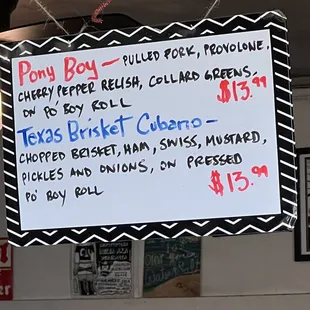 Pony Boy - PULLED PORK, PROVOLONE,
CHERRY PEPPER RELISH, COLLARD GREENS,
ON PO'BOY ROLL $13.99
Texas Brisket Cubano -
CHOPPED BRISKET, HAM, SWISS, MUSTARD,
PICKLES AND ONIONS, ON PRESSED
PO' BOY ROLL $13.99